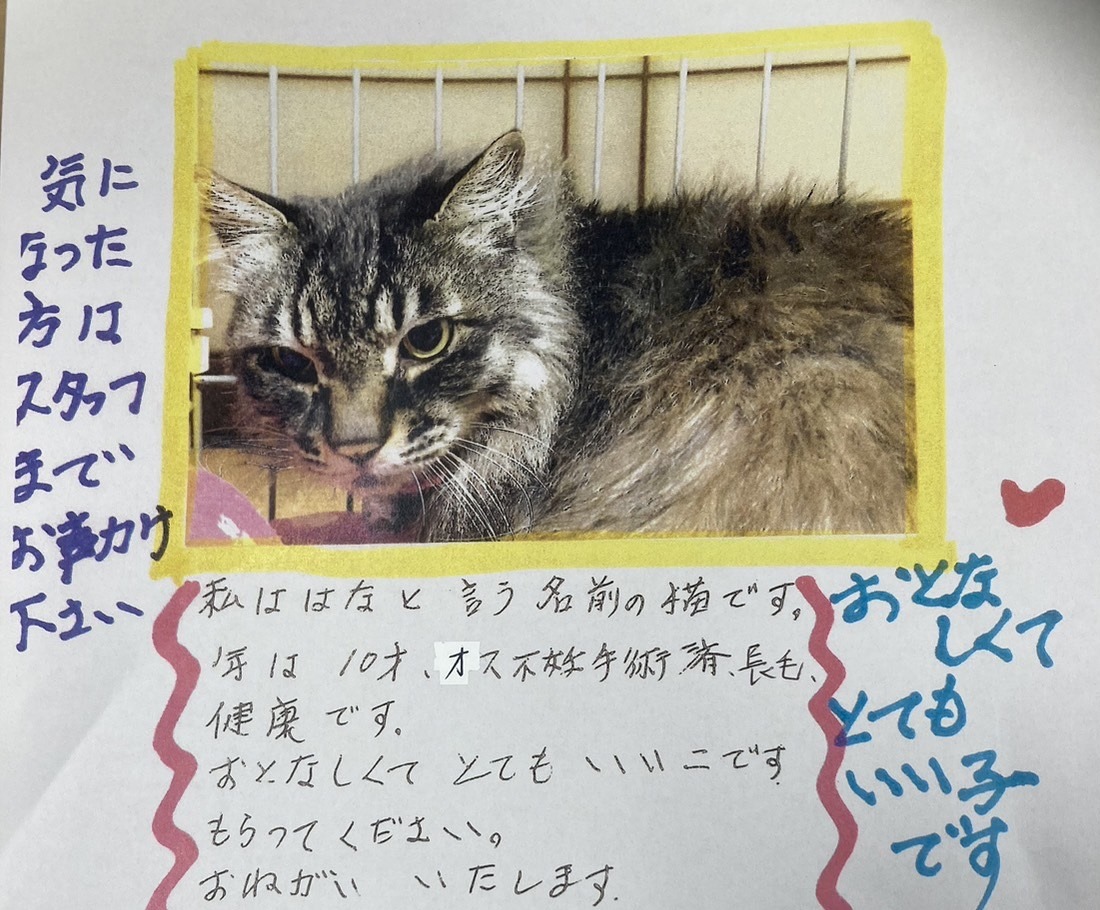 気に
なった
方は
スタッフ
まで
お声かけ
下さい
私ははなと言う名前の猫です。
年は10才、オス不妊手術済、長毛、
健康です。
おとなしくてとてもいいこです
もらってください。
おねがいいたします.
おとな
しくて
とても
いい子
です